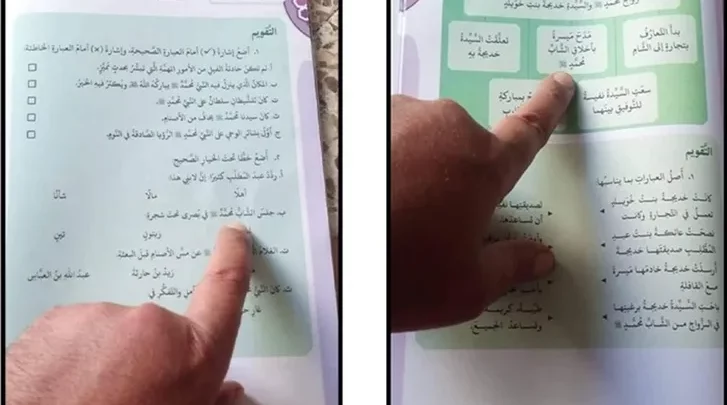 التقويم
١. أضع إشارة (✓) أمام العبارة الصحيحة، وإشارة (×) أمام العبارة الخاطئة:
أ. لم تكن حادثة الفيل من الأمور المهمة التي تبشر بحدث مميز.
ب. المكان الذي ينزل فيه النبي محمد ﷺ يباركه الله ﷻ ويكثر فيه الخير.
ت. كان للشيطان سلطان على النبي محمد ﷺ
ث. كان سيدنا محمد ﷺ يخاف من الأصنام.
ج. أول بشائر الوحي على النبي محمد ﷺ الرؤيا الصادقة في النوم.
٢. أضع خطًّا تحت الخيار الصحيح
أ. ردد عبد المطلب كثيرًا: إن لابني هذا:
أهلًا مالًا شأنًا
ب. جلس الشاب محمد ﷺ في بصرى تحت شجرة:
زيتون تين
ت. الغلام ﷺ عن مس الأصنام قبل البعثة:
زيد بن حارثة عبد الله بن العباس
ث. كان النبي والتفكر في
غار
زواج محمد ﷺ والسيدة خديجة بنت خويلد
بدأ التعارف بتجارة إلى الشام
مدح ميسرة بأخلاق الشاب محمد ﷺ
تعلقت السيدة خديجة به
سعت السيدة نفيسة للتوفيق بينهما
يباركه
التقويم
١. أصل العبارات بما يناسبها:
كانت خديجة بنت خويلد تعمل في التجارة وكانت
نصحت عاتكة بنت عبد المطلب صديقتها خديجة
أرسلت خديجة خادمها ميسرة مع القافلة
باحت السيدة خديجة برغبتها في الزواج من الشاب محمد ﷺ
لصديقتها
أن تساعدها
كريمة
وتساعد الجميع.